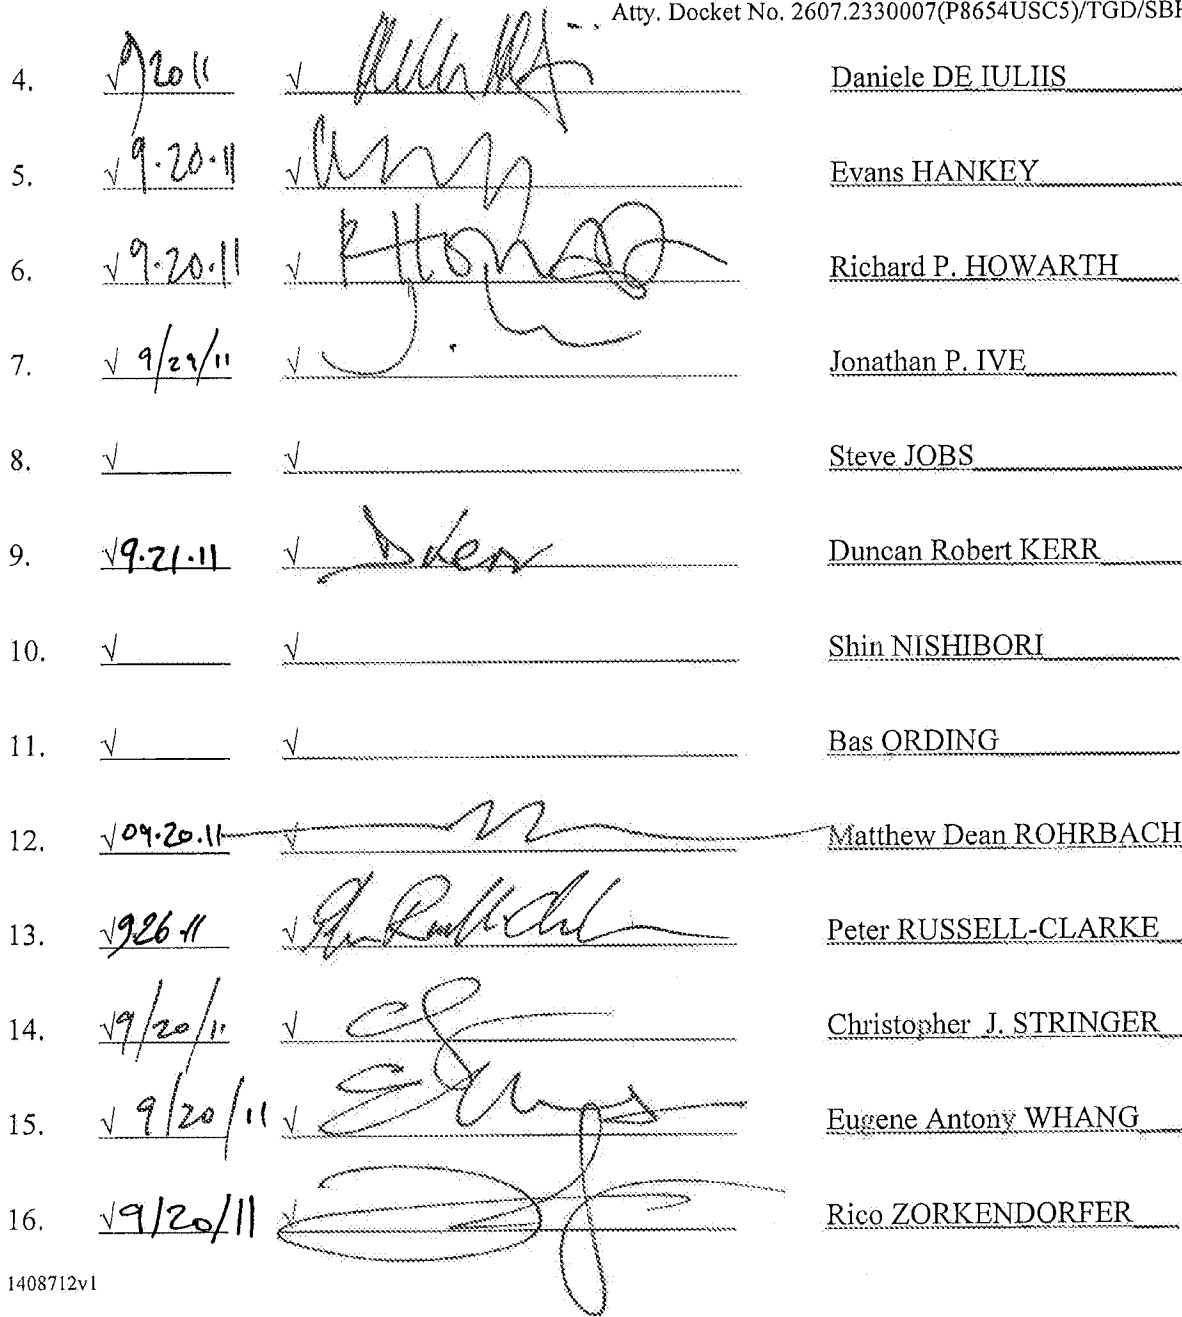 Atty. Docket No. 2607.2330007(P8654USC5)/TGD/SB
4. √ 9 20 11 √ Daniele DE IULIIS
5. √ 9.20.11 √ Evans HANKEY
6. √ 9.20.11 √ Richard P. HOWARTH
7. √ 9/29/11 √ Jonathan P. IVE
8. √ √ Steve JOBS
9. √ 9.21.11 √ DKerr Duncan Robert KERR
10. √ √ Shin NISHIBORI
11. √ √ Bas ORDING
12. √ 09.20.11 √ Matthew Dean ROHRBACH
13. √ 9.26.11 √ Peter RUSSELL-CLARKE
14. √ 9/20/11 √ Christopher J. STRINGER
15. √ 9/20/11 √ Eugene Antony WHANG
16. √ 9/20/11 √ Rico ZORKENDORFER
1408712v1